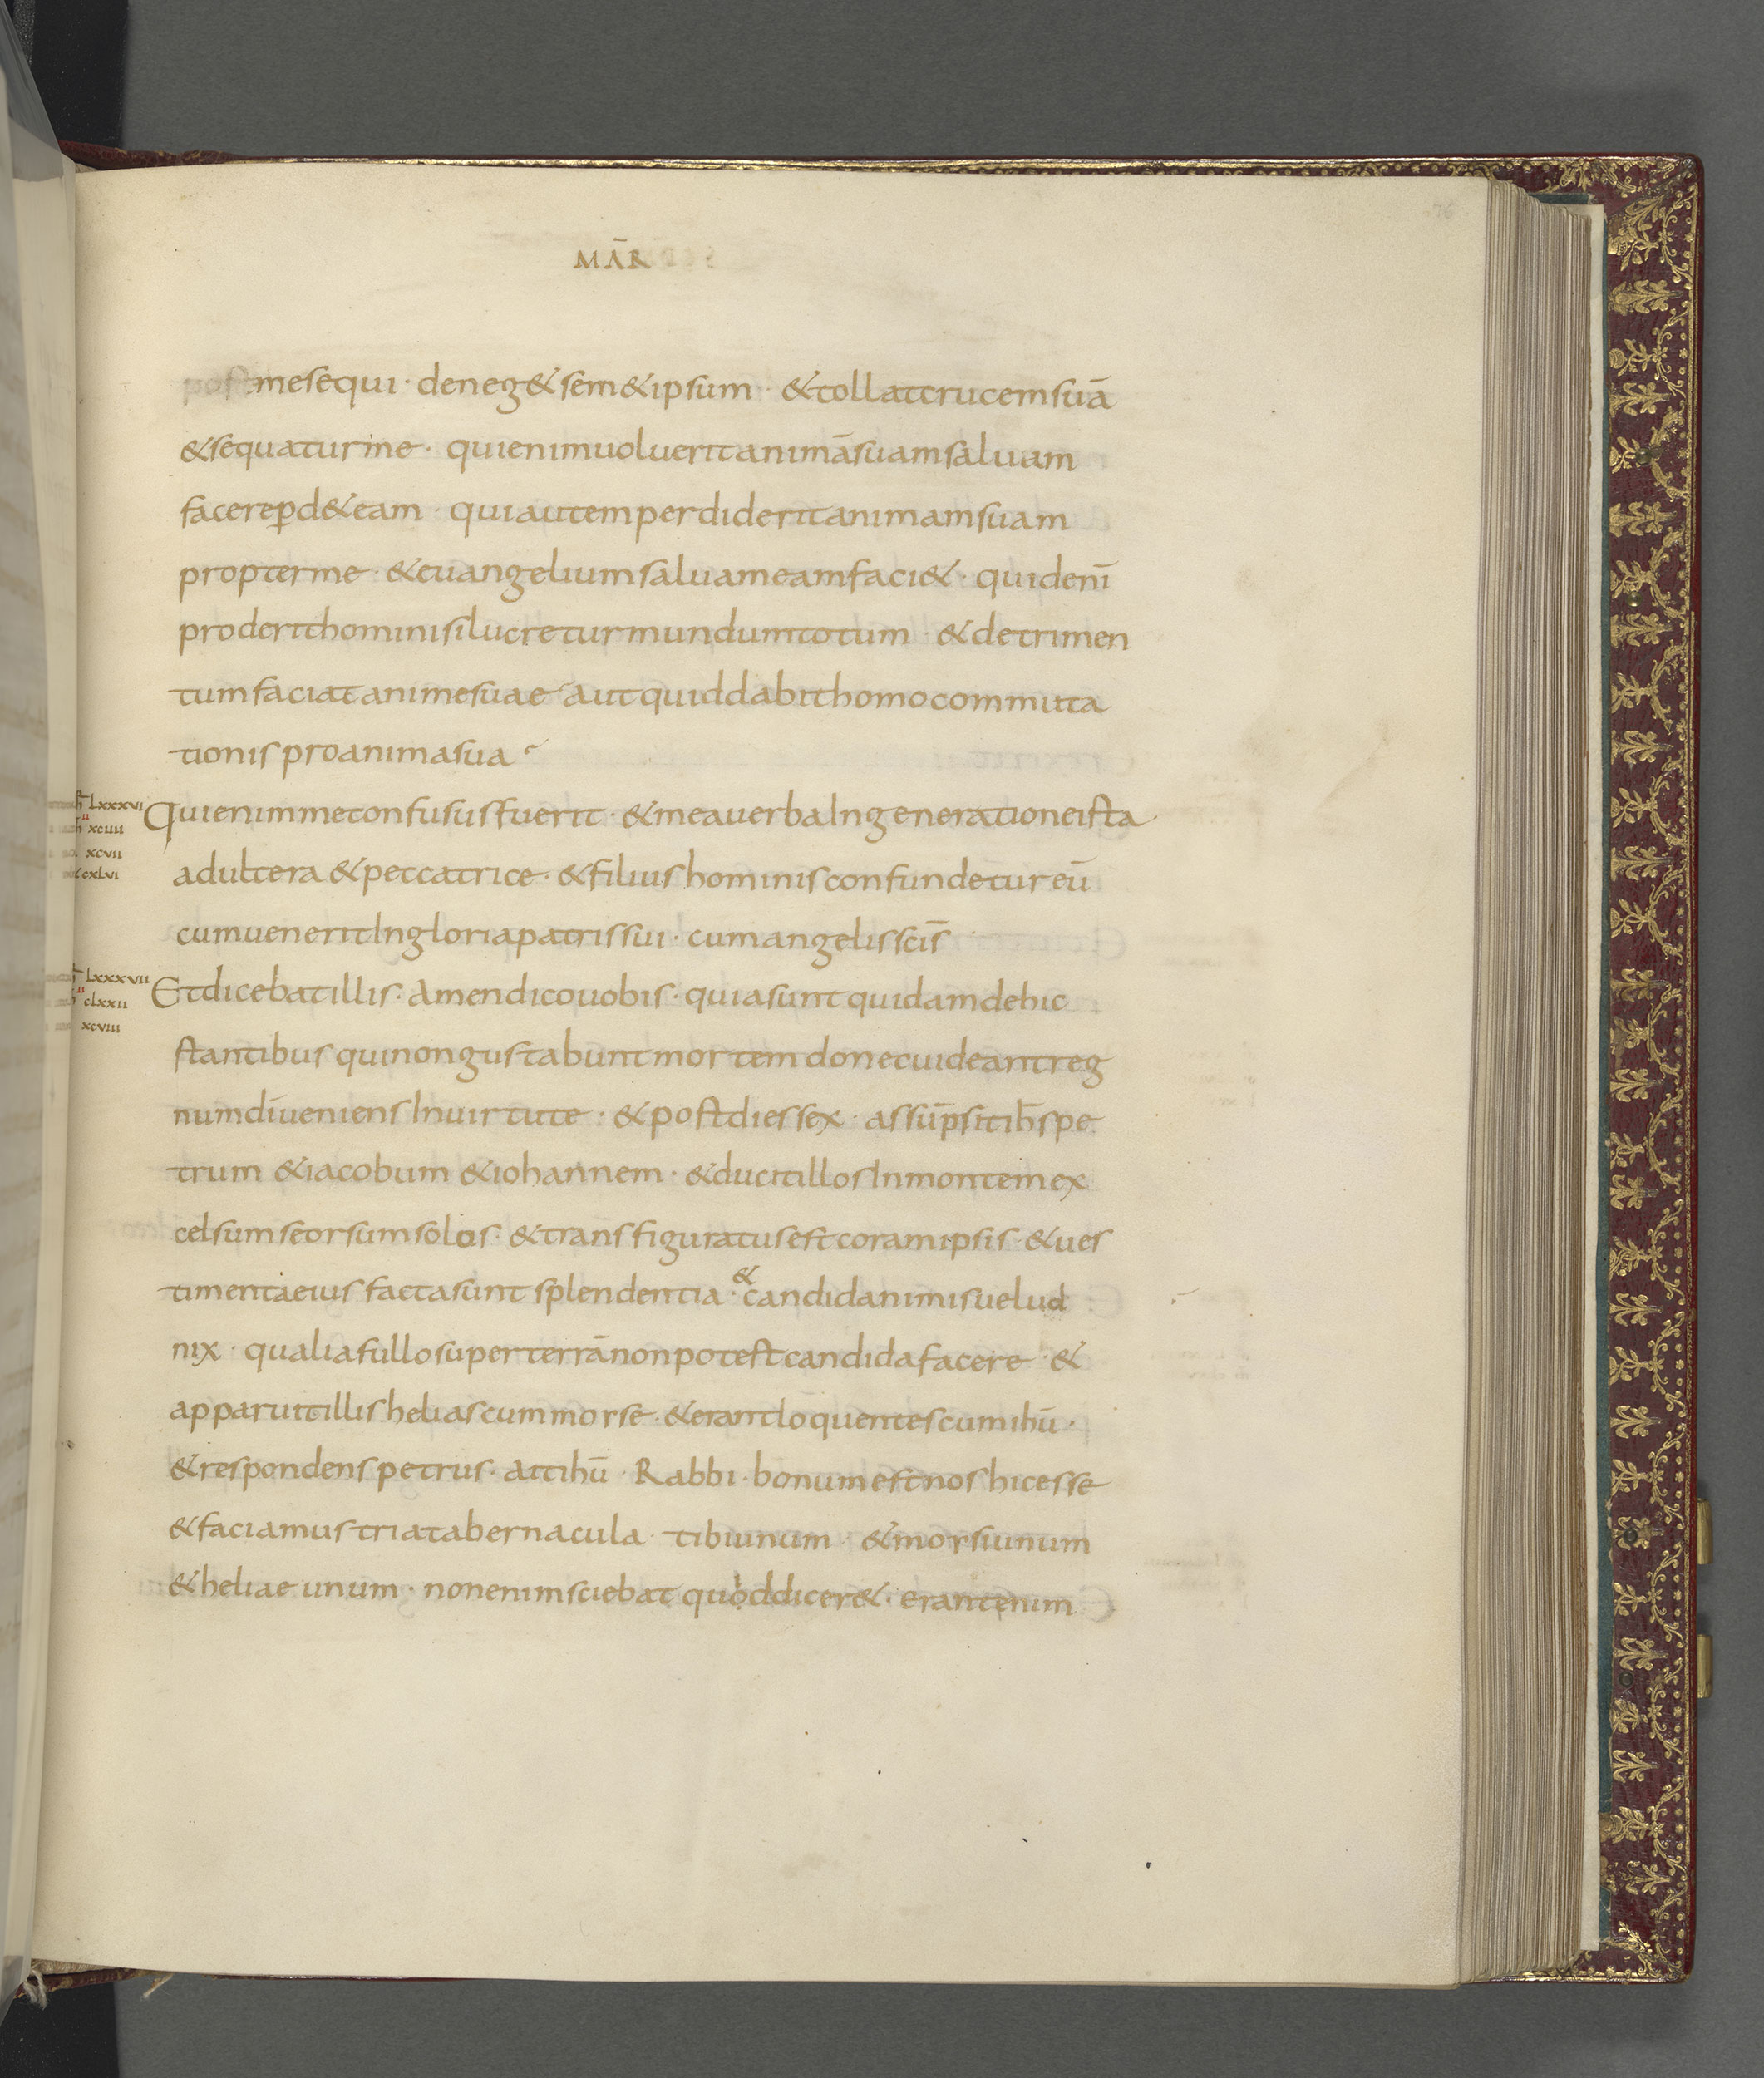 MAR̄
76
post me sequi · deneg& sem&ipsum · & tollat crucem suā
& sequatur me · qui enim uoluerit animā suam saluam
facere ꝑd& eam · qui autem perdiderit animam suam
propter me · & euangelium saluam eam faci& · quid enī
proderit homini si lucretur mundum totum · & detrimen
tum faciat anime suae aut quid dabit homo commuta
tionis pro anima sua
LXXXVI
Qui enim me confusus fuerit · & mea uerba In generatione ista
XCIIII
XCVII
adultera & peccatrice · & filius hominis confundetur eū
CXLVI
cum uenerit In gloria patris sui · cum angelis sc̄is
LXXXVII
Et dicebat illis · Amen dico uobis · quia sunt quidam de hic
CLXXII
XCVIII
stantibus qui non gustabunt mortem donec uideant reg
num dī ueniens In uirtute · & post dies sex · assūpsit ih̄s pe
trum & iacobum & iohannem · & ducit illos In montem ex
celsum seorsum solos · & transfiguratus est coram ipsis · & ues
timenta eius facta sunt splendentia · & candida nimis uelud
nix · qualia fullo super terrā non potest candida facere · &
apparuit illis helias cum morse · & erant loquentes cum ihū ·
& respondens petrus · ait ihū · Rabbi · bonum est nos hic esse
& faciamus tria tabernacula · tibi unum · & morsi unum
& heliae unum · non enim sciebat quod dicer& · erant enim